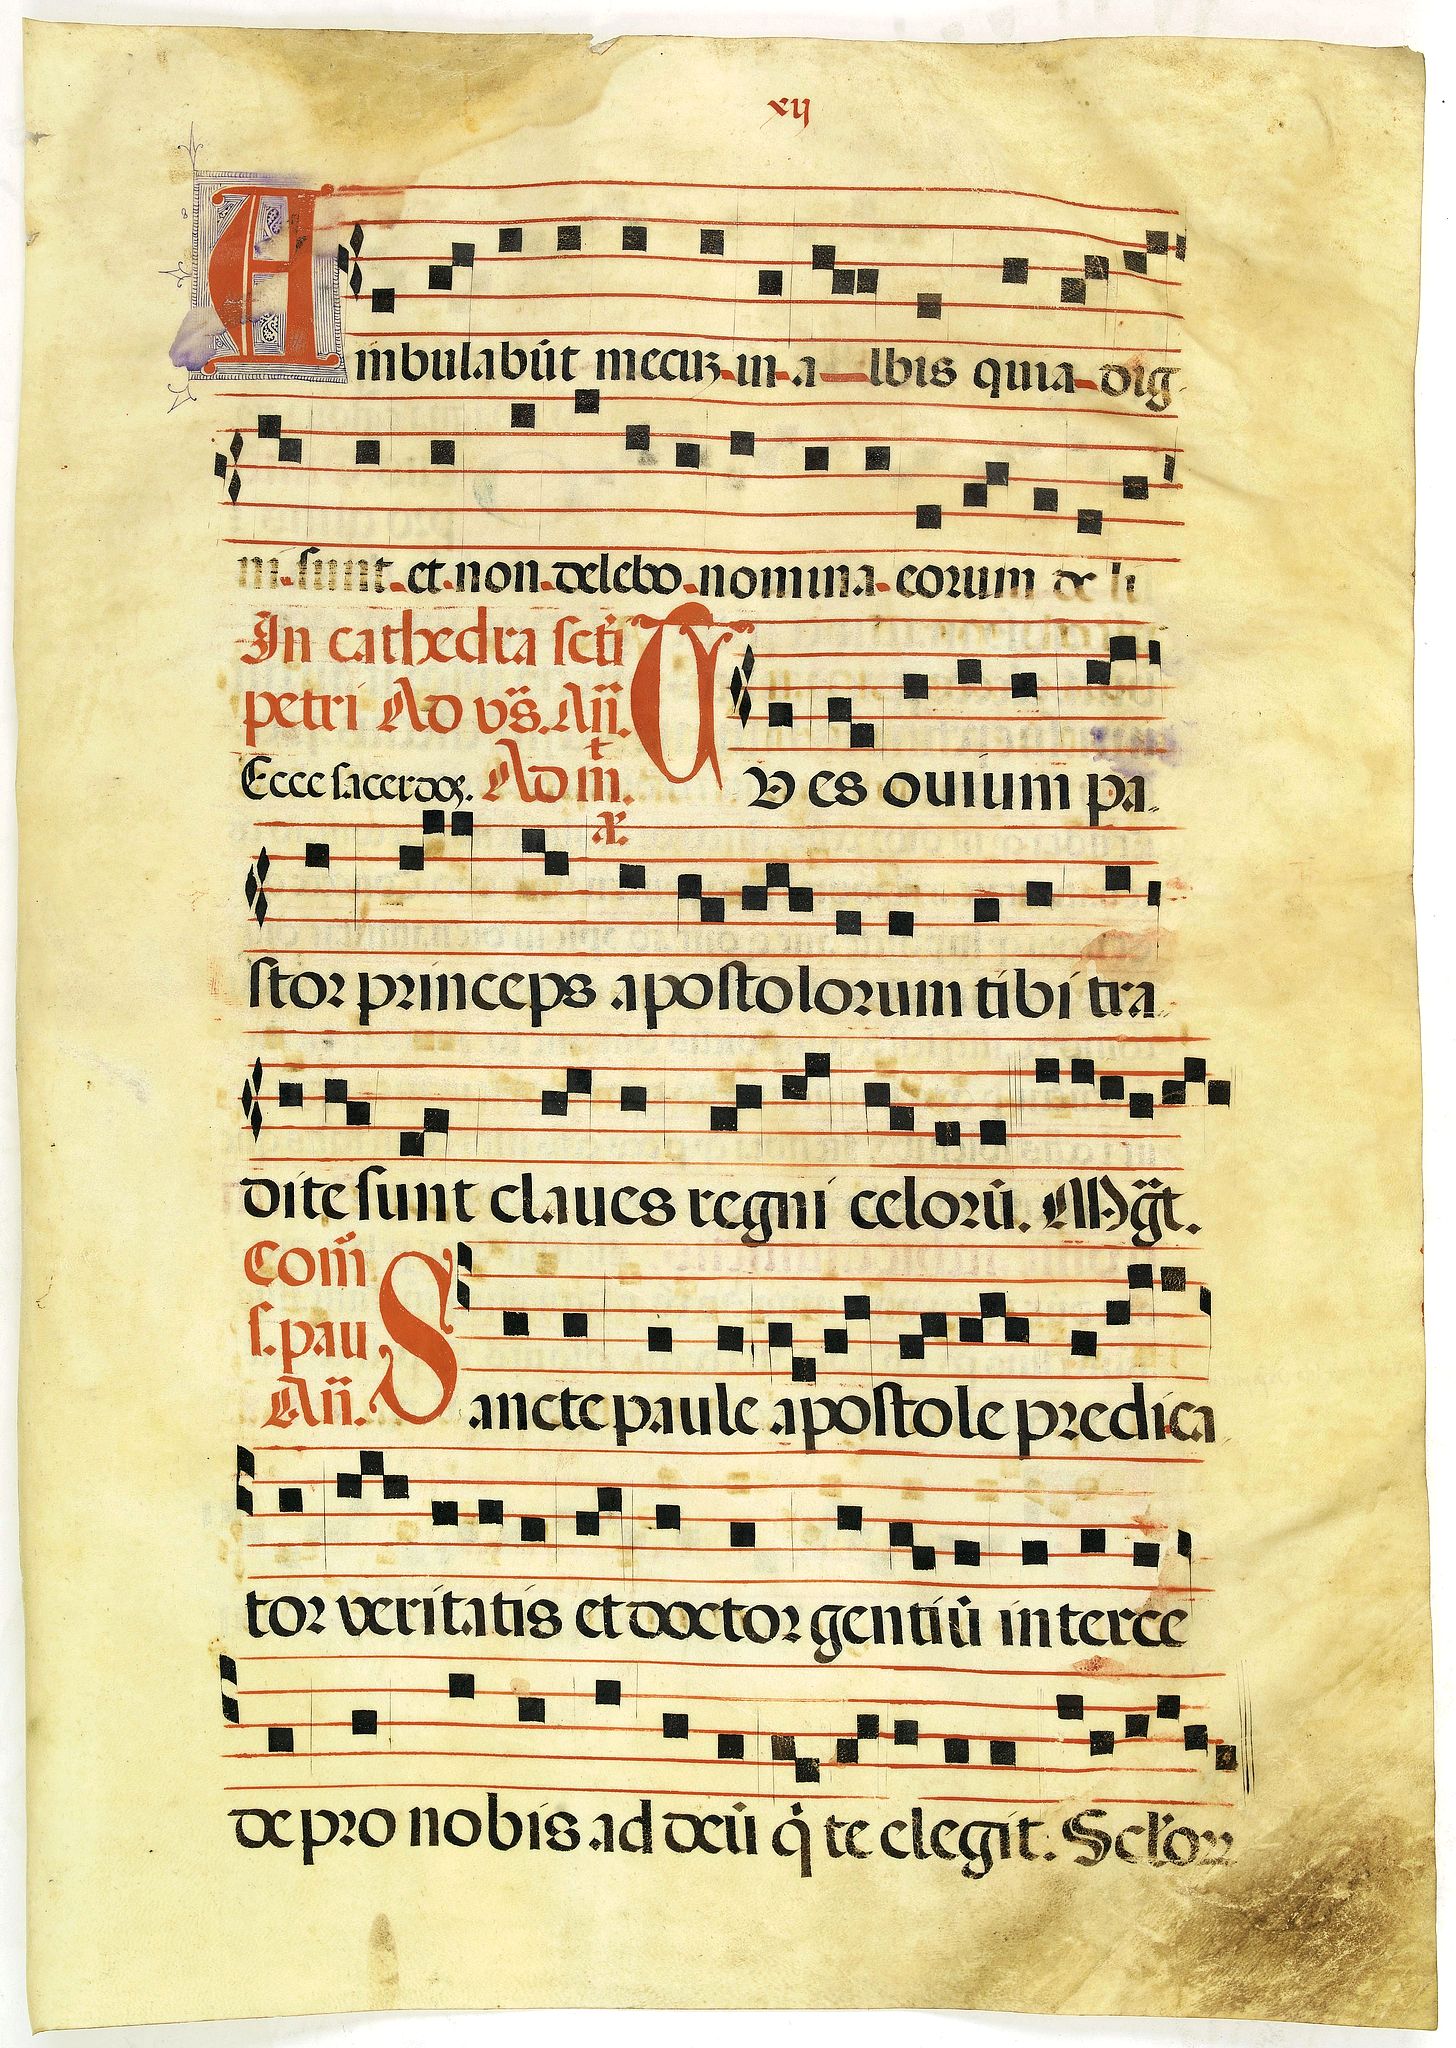 xij
Ambulabūt mecuȝ in a lbis quia dig
ni sunt et non delebo nomina eorum de li
In cathedra scti
petri Ad vs̄. Añ.
Ecce sacerdos. Ad m̄t.
Tv es ouium pa
a͞.
stor princeps apostolorum tibi tra
dite sunt claues regni celorū. Mgt̄.
Com̄
s. pau
Añ.
Sancte paule apostole predica
tor veritatis et doctor gentiū interce
de pro nobis ad deū q̇ te elegit. Sclor̄